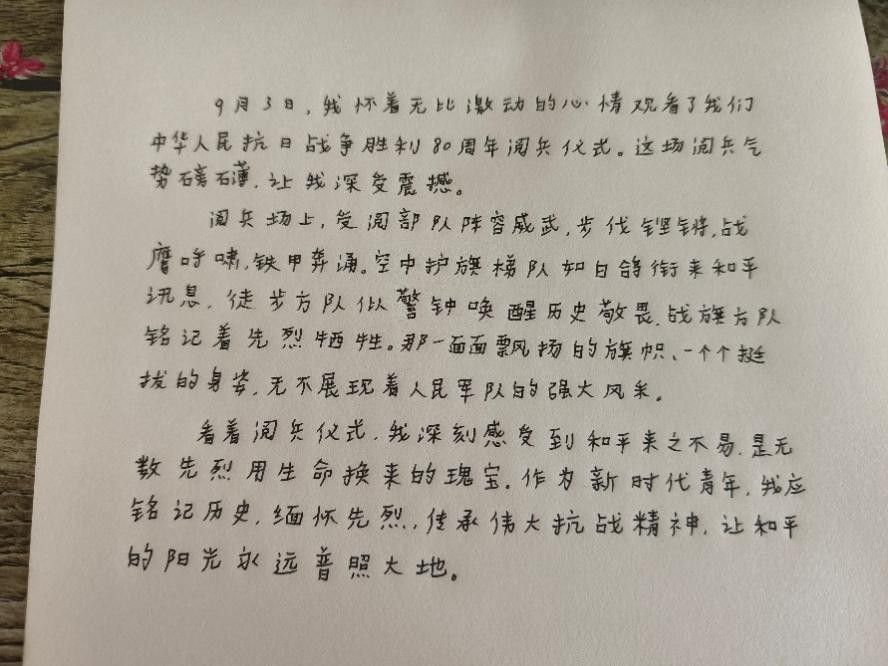 9月3日,我怀着无比激动的心情观看了我们
中华人民抗日战争胜利80周年阅兵仪式。这场阅兵气
势磅礴,让我深受震撼。
阅兵场上,受阅部队阵容威武,步伐铿锵,战
鹰呼啸,铁甲奔涌。空中护旗梯队如白鸽衔来和平
讯息,徒步方队似警钟唤醒历史敬畏,战旗方队
铭记着先烈牺牲。那一面面飘扬的旗帜、一个个挺
拔的身姿,无不展现着人民军队的强大风采。
看着阅兵仪式,我深刻感受到和平来之不易,是无
数先烈用生命换来的瑰宝。作为新时代青年,我应
铭记历史,缅怀先烈,传承伟大抗战精神,让和平
的阳光永远普照大地。